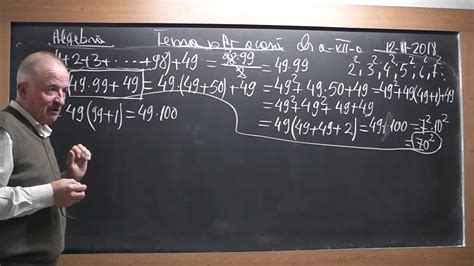 Algebră Tema pt. acasă Cls a-VII-a 12-11-2018
1+2+3+ ⋯ +98)+49 = 98·99/2 = 49·99 2², 3², 4², 5², 6², 7²
49·99+49 = 49(49+50)+49 = 49²+49·50+49 = 49²+49(49+1)+49
= 49²+49²+49+49
49(99+1)=49·100 = 49(49+49+2) = 49·100 = 7²·10²
= 70²